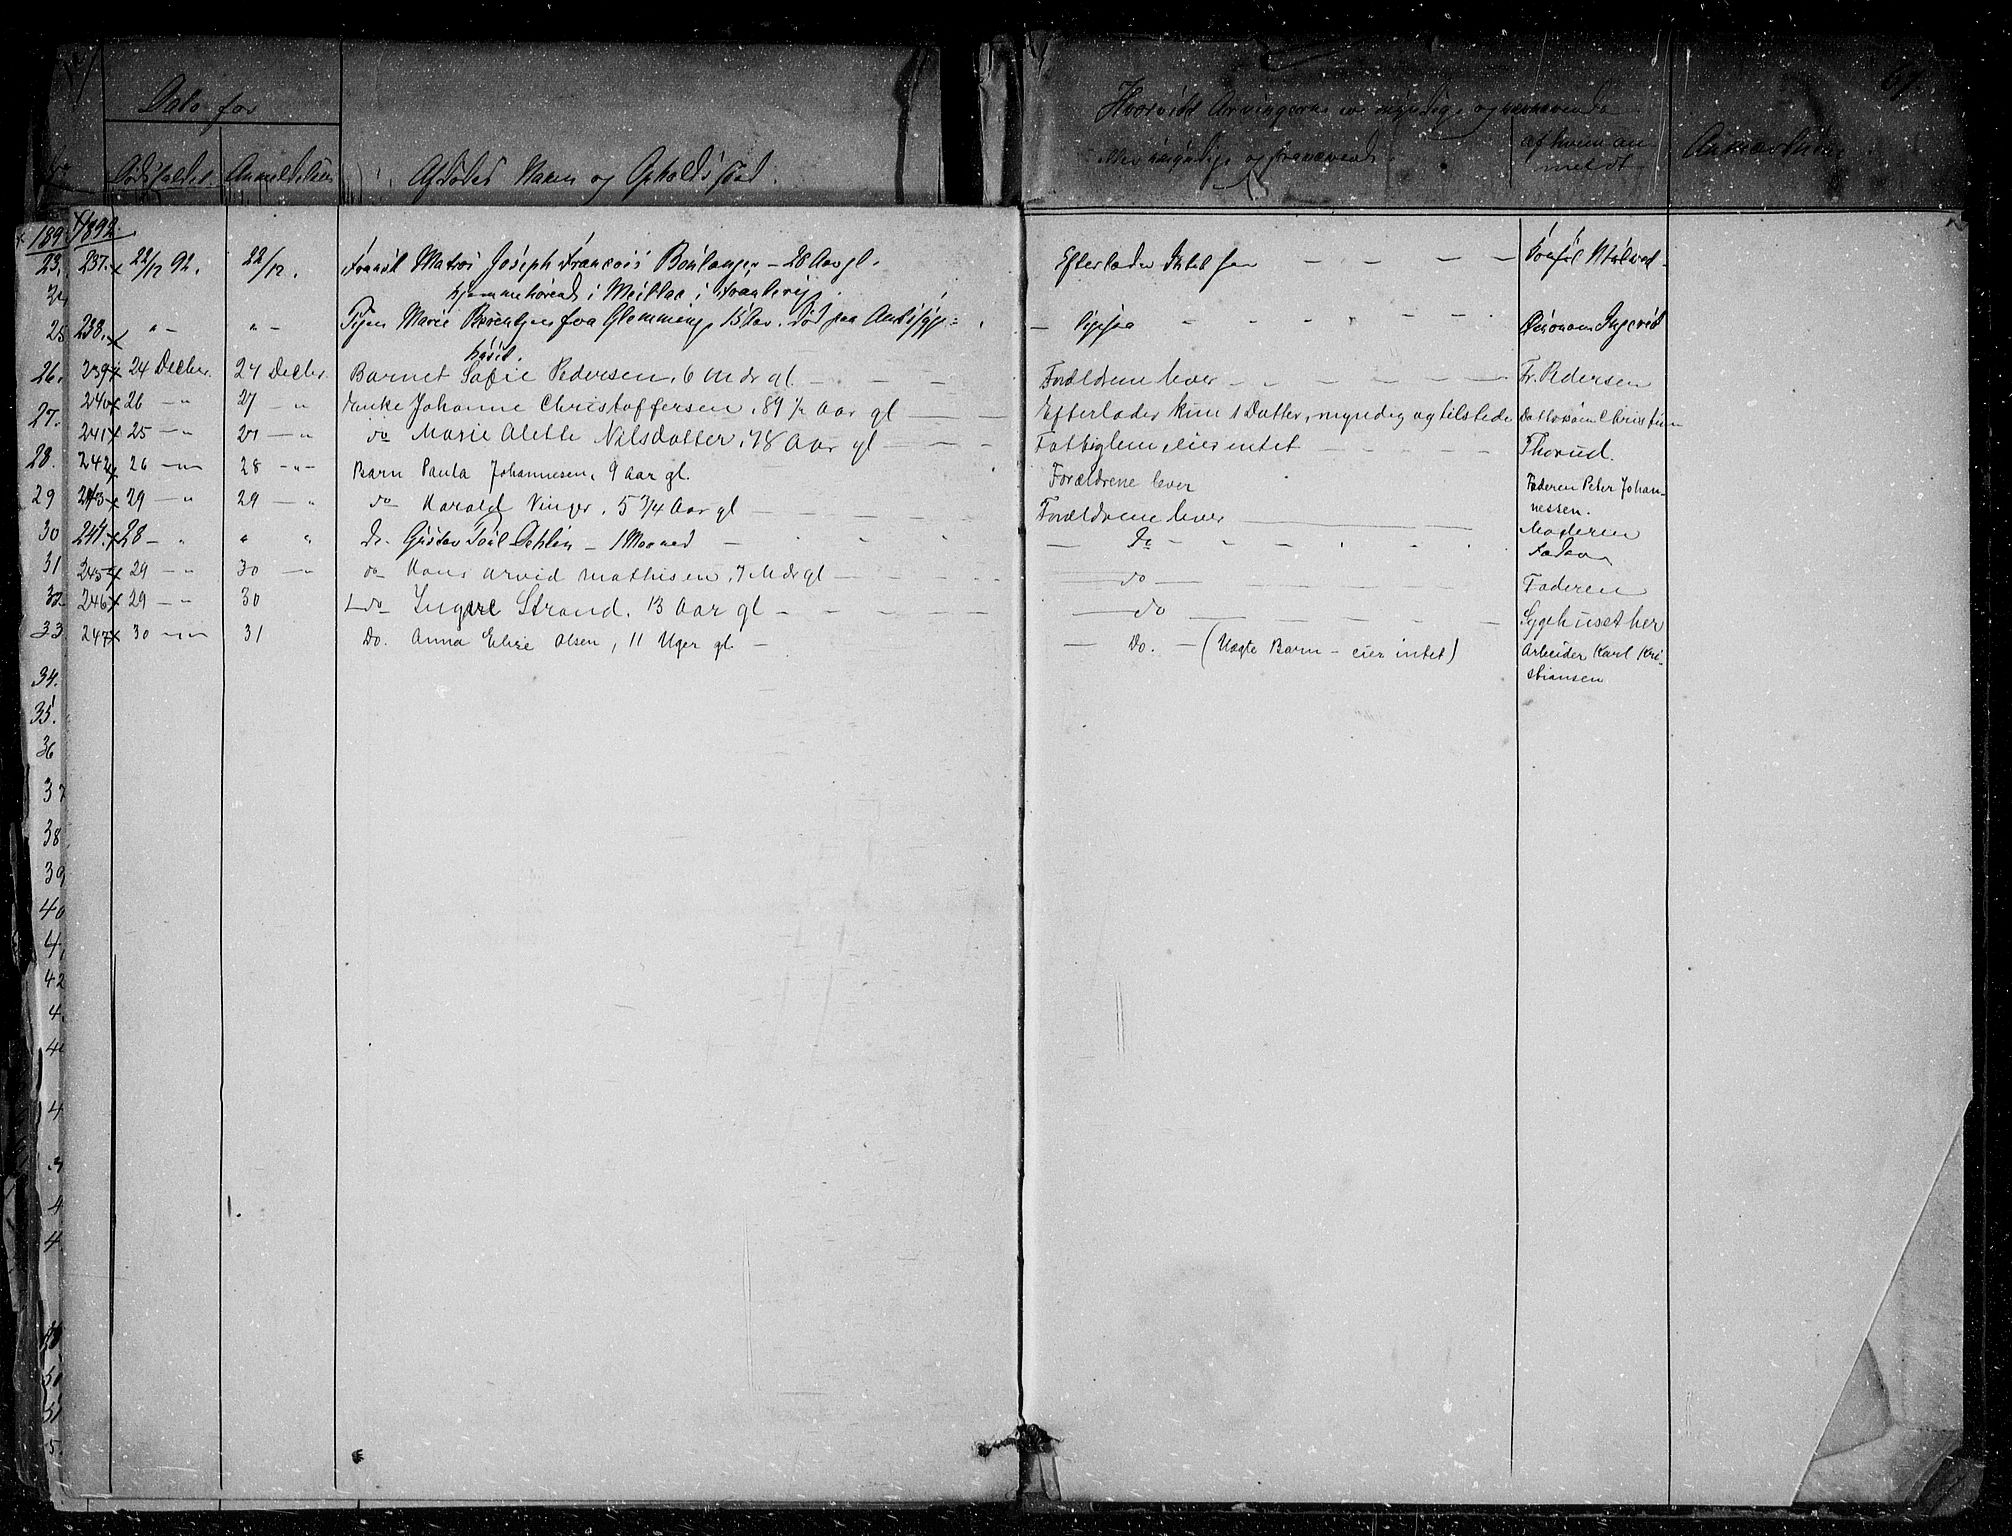 Dato for
Dødsfaldet. Anmeldelsen
Afdødes Navn og Opholdssted.
Hvorvidt Arvingerne ere myndige og nærværende
eller umyndige og fraværende.
af hvem an-
meldt
Anmærkning
67.
1892.
237. 22/12 92. 22/12. Fransk Matros Joseph Francois Boulanger - 28 Aar gl. Efterlader Intet her - - - - Konsul
hjemmehørende i Meillac i Frankrig.
238. " - " - Pigen Marie Berentzen fra Glemmenge 15 Aar. Død paa Amtssyge= - ligesaa - - - - - Økonom Ingerød
huset.
239 24 Decbr. 24 Decbr. Barnet Sofie Pedersen, 6 Mdr gl. - - - Forældrene lever - - - - Fr. Pedersen
240 26 - " 27 - " Enke Johanne Christoffersen, 89 1/2 Aar gl - - Efterlader kun 1 Datter, myndig og tilstede Dattersøn Christian
241 25 - " 27 - " do Marie Alette Nilsdatter, 78 Aar gl - - - Fattiglem, eier intet - - - - Thorud.
242 26 - " - 28 - " - Barn Paula Johannesen, 9 aar gl. Forældrene lever Faderen Peter Johan-
nessen.
243 29 - " 29 - " do Harald Vinger, 5 3/4 Aar gl - - - Forældrene lever - - Moderen
244. 28 - " " " Do. Gustav Dahlin - 1 Maaned - - - - - Do - - - - Faderen
245 29 - " 30 - " do Hans Arvid Mathisen, 7 Mdr gl - - - - do - - - Faderen
246 29 - " 30 do Ingvel Strand. 13 Aar gl - - - - - do - - - - Sygehuset her
247 30 - " - " 31 Do. Anna Elise Olsen, 11 Uger gl. - - Do. - (Uægte Barn - eier intet) Arbeider Karl Kri-
stiansen
189
23.
25
26.
27.
28.
29
30
31
32
33
34.
35.
36
37
38
39
40
42